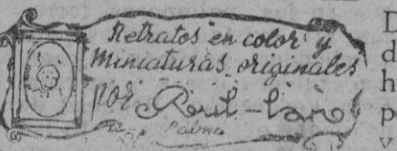 Retratos en color y
Miniaturas originales
por Raül-Lan
Palma
D
d
h
p
v